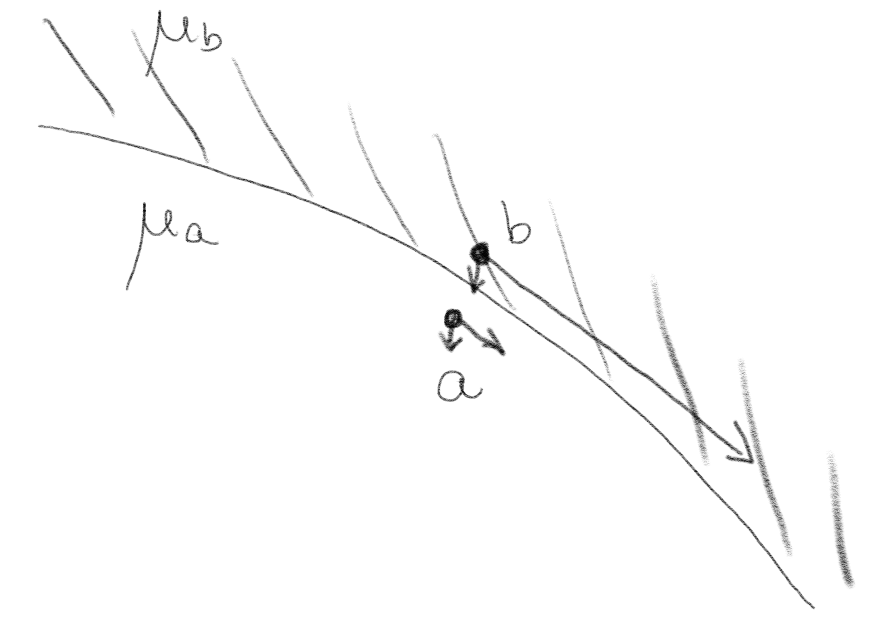 μb
μa
b
a